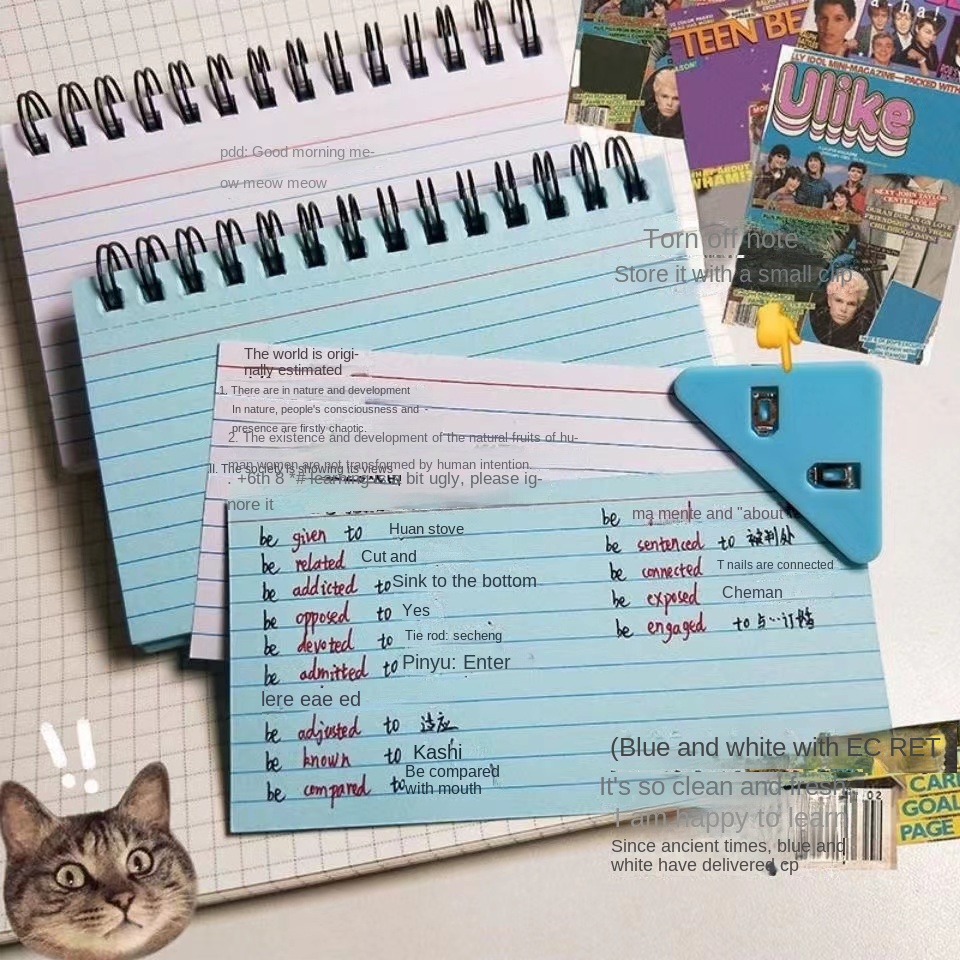 TEEN BE
a-ha!
LY IDOL MINI-MAGAZINE—PACKED WITH
Ulike
WHAM!?
SEXY JOHN TAYLOR
CENTERFOLD!
DURAN DURAN ON LOVE,
FRIENDSHIP AND THEIR
CHILDHOOD DAYS!
pdd: Good morning me-
ow meow meow
Torn off note
Store it with a small clip
The world is origi-
nally estimated
1. There are in nature and development
In nature, people's consciousness and -
presence are firstly chaotic.
2. The existence and development of the natural fruits of hu-
man women are not transformed by human intention.
II. The society is showing its views
. +6th 8 *# learning a bit ugly, please ig-
nore it
be given to Huan stove
be related Cut and
be addicted to Sink to the bottom
be opposed to Yes
be devoted to Tie rod: secheng
be admitted to Pinyu: Enter
lere eae ed
be adjusted to 适应
be known to Kashi
be compared to Be compared
with mouth
be ma mente and "about
be sentenced to 被判处
be connected T nails are connected
be exposed Cheman
be engaged to 与…订婚
(Blue and white with EC RET
It's so clean and fresh
I am happy to learn
Since ancient times, blue and
white have delivered cp
02
CARE
GOAL
PAGE